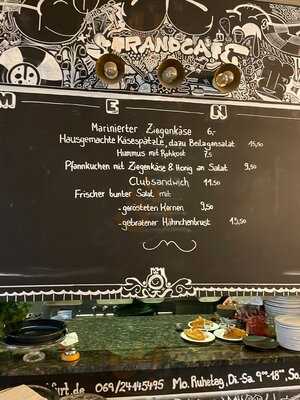 STRANDCAFE
MEN
Marinierter Ziegenkäse 6,-
Hausgemachte Käsespätzle, dazu Beilagensalat 15,50
Hummus mit Rohkost 7,5
Pfannkuchen mit Ziegenkäse & Honig an Salat 9,50
Clubsandwich 11.50
Frischer bunter Salat mit
-gerösteten Kernen 9,50
-gebratener Hähnchenbrust 13,50
furt.de 069/24445495 Mo. Ruhetag, Di.-Sa. 9⁰⁰-18⁰⁰, So